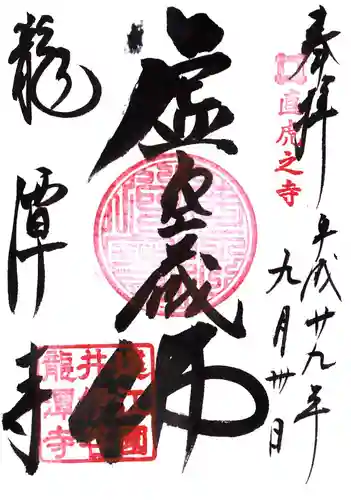 奉拝
直虎之寺
平成廿九年
九月卅日
虚空蔵佛
遠江國
井伊谷
龍潭寺
龍潭寺